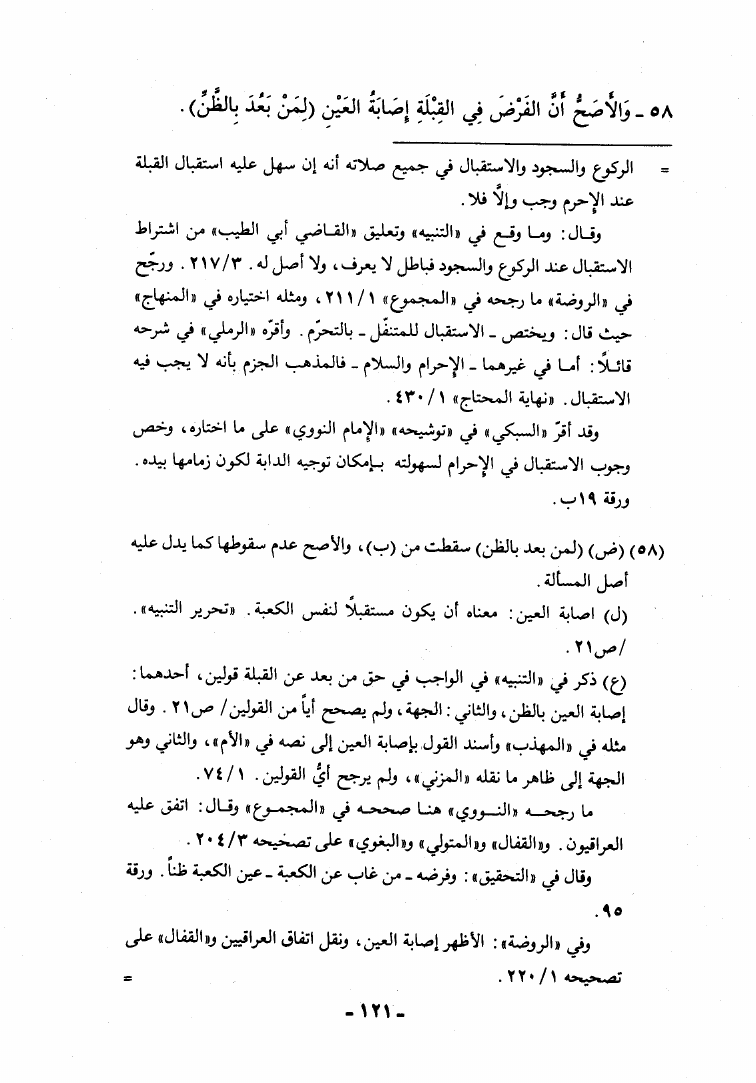 ٥٨ ـ وَالأَصَحُّ أَنَّ الفَرْضَ فِي القِبْلَةِ إِصَابَةُ العَيْنِ (لِمَنْ بَعُدَ بِالظَّنِّ).
= الركوع والسجود والاستقبال في جميع صلاته أنه إن سهل عليه استقبال القبلة
عند الإحرم وجب وإلَّا فلا.
وقـال: ومـا وقـع في «التنبيه» وتعليق «القـاضي أبي الطيب» من اشتراط
الاستقبال عند الركوع والسجود فباطل لا يعرف، ولا أصل له. ٢١٧/٣. ورجّح
في «الروضة» ما رجحه في «المجموع» ٢١١/١، ومثله اختياره في «المنهاج»
حيث قال: ويختص ـ الاستقبال للمتنفّل ـ بالتحرّم. وأقرّه «الرملي» في شرحه
قائـلًا: أمـا في غيرهمـا ـ الإحرام والسلام ـ فالمذهب الجزم بأنه لا يجب فيه
الاستقبال. «نهاية المحتاج» ٤٣٠/١.
وقد أقرّ «السبكي» في «توشيحه» «الإمام النووي» على ما اختاره، وخص
وجوب الاستقبال في الإحرام لسهولته بـإمكان توجيه الدابة لكون زمامها بيده.
ورقة ١٩ب.
(٥٨) (ض) (لمن بعد بالظن) سقطت من (ب)، والأصح عدم سقوطها كما يدل عليه
أصل المسألة.
(ل) اصابة العين: معناه أن يكون مستقبلًا لنفس الكعبة. «تحرير التنبيه».
/ص٢١.
(ع) ذكر في «التنبيه» في الواجب في حق من بعد عن القبلة قولين، أحدهما:
إصابة العين بالظن، والثاني: الجهة، ولم يصحح أياً من القولين/ ص٢١. وقال
مثله في «المهذب» وأسند القول بإصابة العين إلى نصه في «الأم»، والثاني وهو
الجهة إلى ظاهر ما نقله «المزني»، ولم يرجح أيُّ القولين. ٧٤/١.
ما رجحـه «النـووي» هنـا صححـه في «المجمـوع» وقـال: اتفق عليه
العراقيون. و«القفال» و«المتولي» و«البغوي» على تصحيحه ٢٠٤/٣.
وقال في «التحقيق»: وفرضه ـ من غاب عن الكعبة ـ عين الكعبة ظناً. ورقة
٩٥.
وفي «الروضة»: الأظهر إصابة العين، ونقل اتفاق العراقيين و«القفال» على
تصحيحه ٢٢٠/١. =
ـ ١٢١ ـ